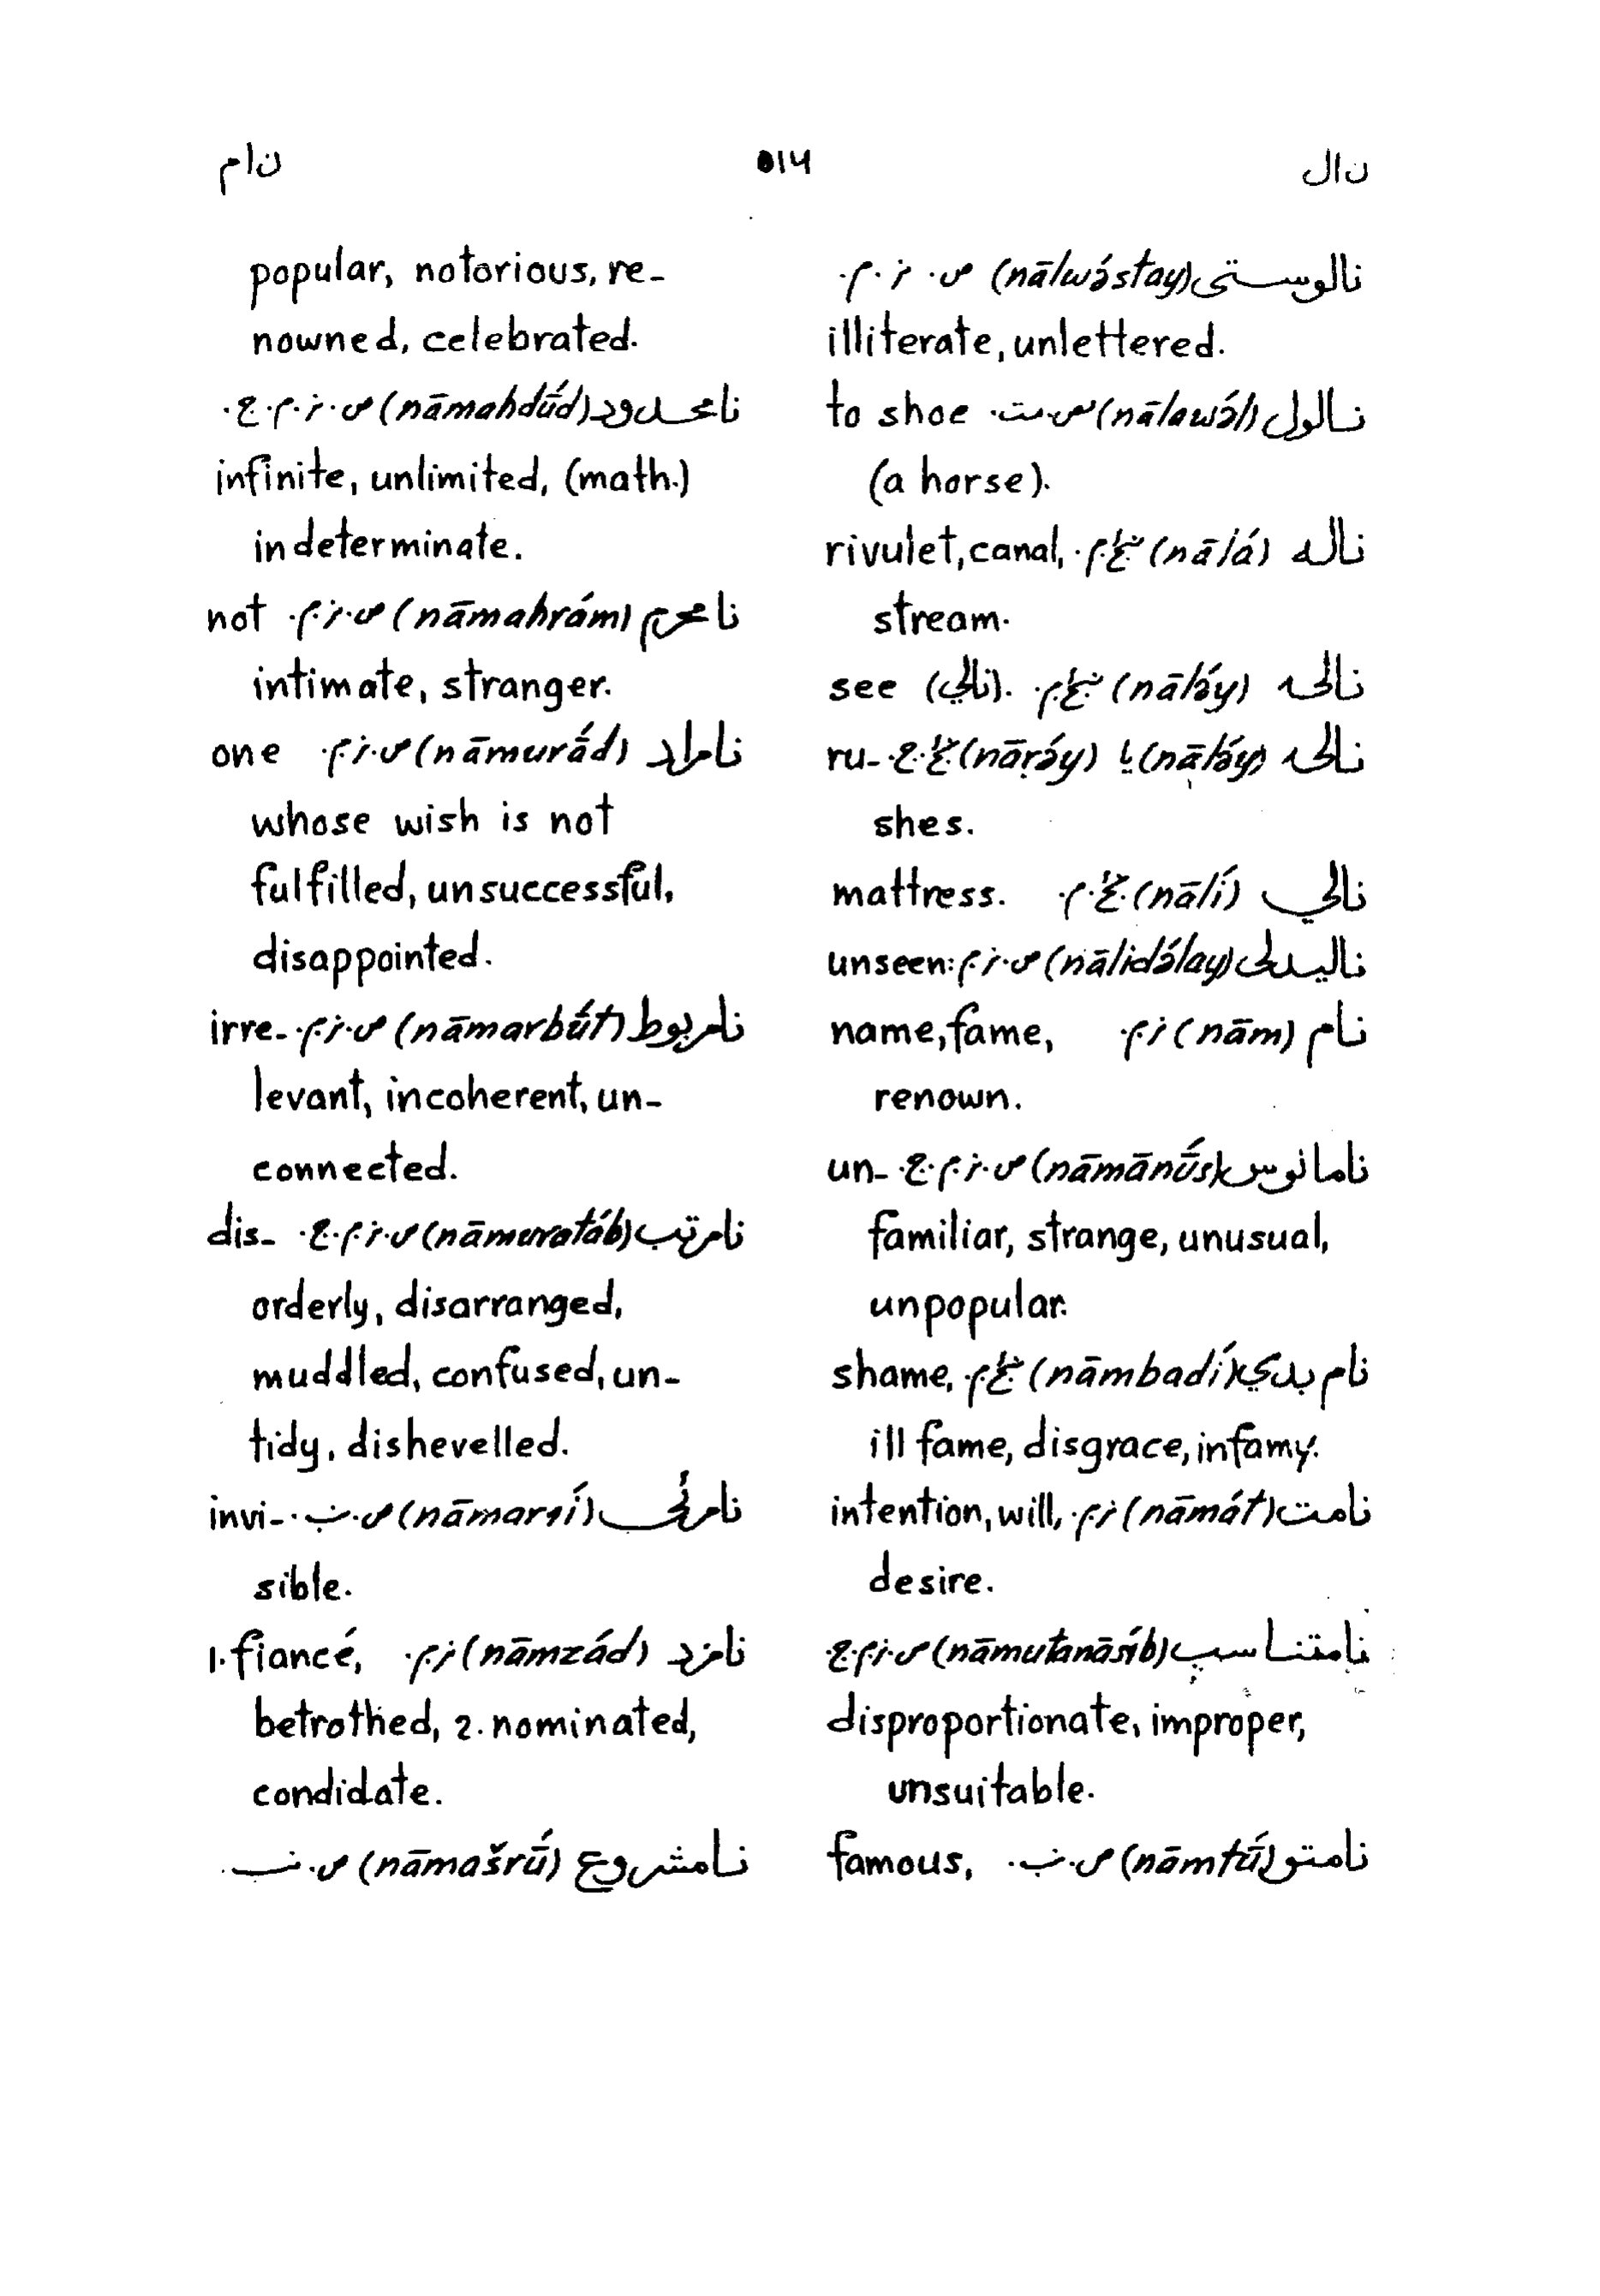 نال ۵۱۴ نام
نالوستی (nālwə́stay) ص. نر. م.
illiterate, unlettered.
نالول (nālawə́l) مص. مت. to shoe
(a horse).
ناله (nālá) ښځ. م. rivulet, canal,
stream.
نالۍ (nālə́y) ښځ. م. see (نالي).
نالۍ (nāḷə́y) یا (nāṛə́y) ښځ. ج. ru-
shes.
نالي (nālí) ښځ. م. mattress.
نالیدلی (nālidə́lay) ص. نر. م. unseen.
نام (nām) نر. م. name, fame,
renown.
نامانوس (nāmānū́s) ص. نر. م. ج. un-
familiar, strange, unusual,
unpopular.
نام بدي (nāmbadí) ښځ. م. shame,
ill fame, disgrace, infamy.
نامت (nāmát) نر. م. intention, will,
desire.
نامتناسب (nāmutanāsíb) ص. نر. م. ج.
disproportionate, improper,
unsuitable.
نامتو (nāmtú) ص. نب. famous,
popular, notorious, re-
nowned, celebrated.
نامحدود (nāmahdū́d) ص. نر. م. ج.
infinite, unlimited, (math.)
indeterminate.
نامحرم (nāmahrám) ص. نر. م. not
intimate, stranger.
نامراد (nāmurā́d) ص. نر. م. one
whose wish is not
fulfilled, unsuccessful,
disappointed.
نامربوط (nāmarbū́t) ص. نر. م. irre-
levant, incoherent, un-
connected.
نامرتب (nāmuratáb) ص. نر. م. ج. dis-
orderly, disarranged,
muddled, confused, un-
tidy, dishevelled.
نامرئي (nāmar'í) ص. نب. invi-
sible.
نامزد (nāmzád) نر. م. 1. fiancé,
betrothed, 2. nominated,
condidate.
نامشروع (nāmašrū́) ص. نب.